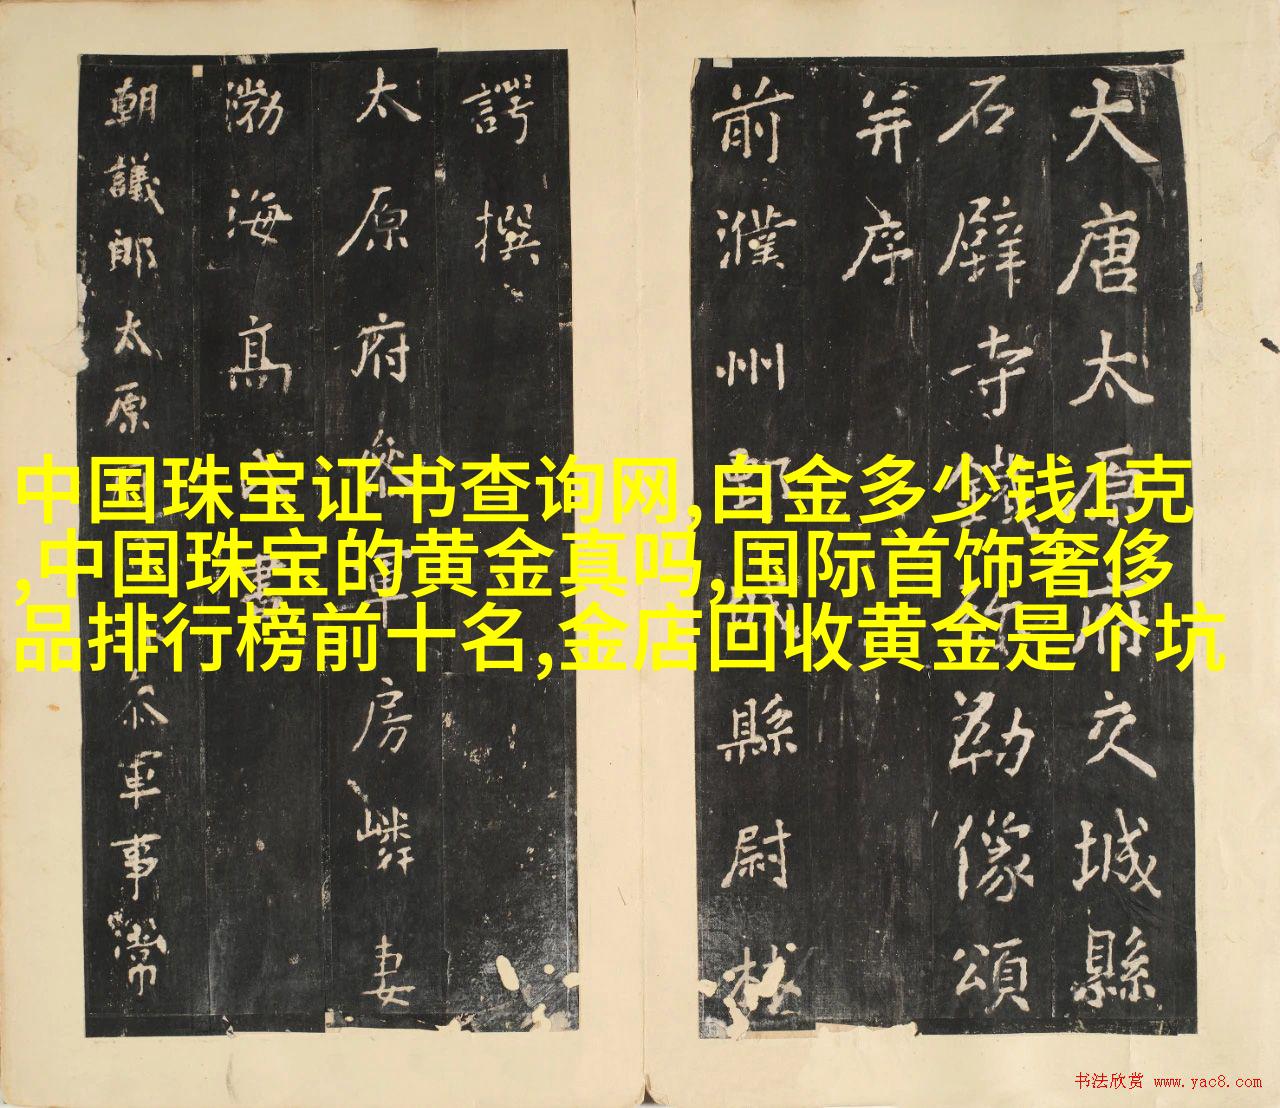 大唐太原府交城縣
石壁寺鐵弥勒像頌
并序
前濮州鄄城縣尉林
諤撰
太原府参軍房嶙妻
渤海高氏書
朝議郎太原参軍事常
中国珠宝证书查询网,白金多少钱1克
,中国珠宝的黄金真吗,国际首饰奢侈
品排行榜前十名,金店回收黄金是个坑
书法欣赏 www.yac8.com